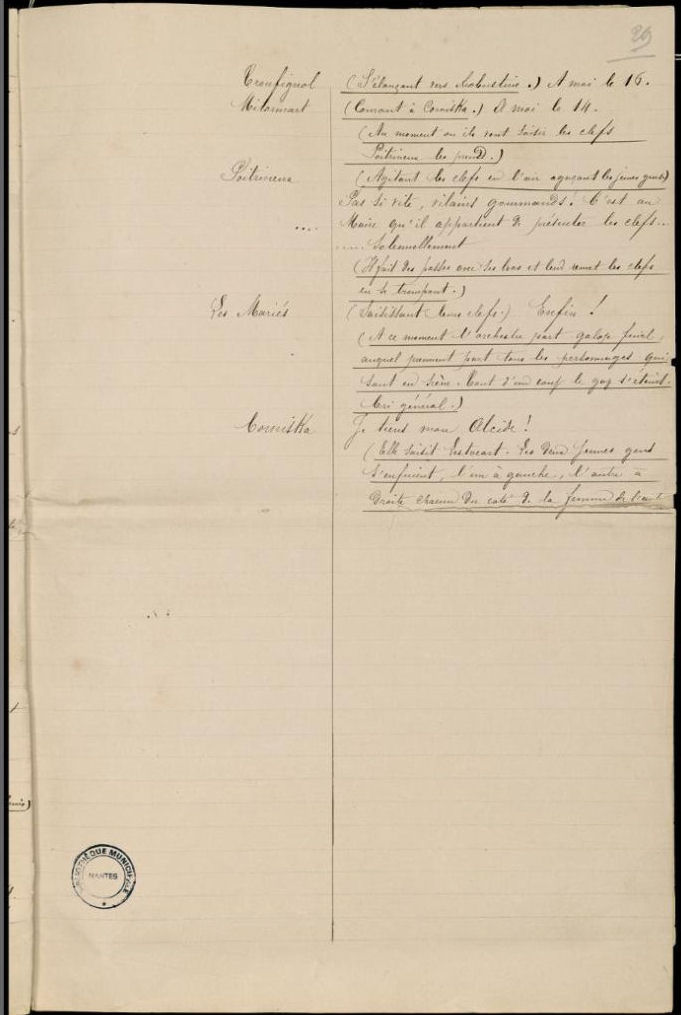 29
Troufignol (S'élançant vers Robustine.) A moi le 16.
Mitormart (Courant à Corniska.) A moi le 14.
(Au moment où ils vont saisir les clefs
Poitrineux les prend.)
Poitrineux (Agitant les clefs en l'air agaçant les jeunes gens)
Pas si vite, vilains gourmands! C'est au
.... Maire qu'il appartient de présenter les clefs...
..... Solennellement
(Il fait des passes avec ses bras et leur remet les clefs
en se trompant.)
Les Mariés (Saisissant leurs clefs.) Enfin!
(A ce moment l'orchestre part galop final,
auquel prennent part tous les personnages qui
sont en scène. Tout d'un coup le gaz s'éteint.
Cri général.)
Corniska Je tiens mon Alcide!
(Elle saisit Les deux jeunes gens
s'enfuient, l'un à gauche, l'autre à
droite chacun du coté de la femme de l'autre
BIBLIOTHÈQUE MUNICIPALE
NANTES